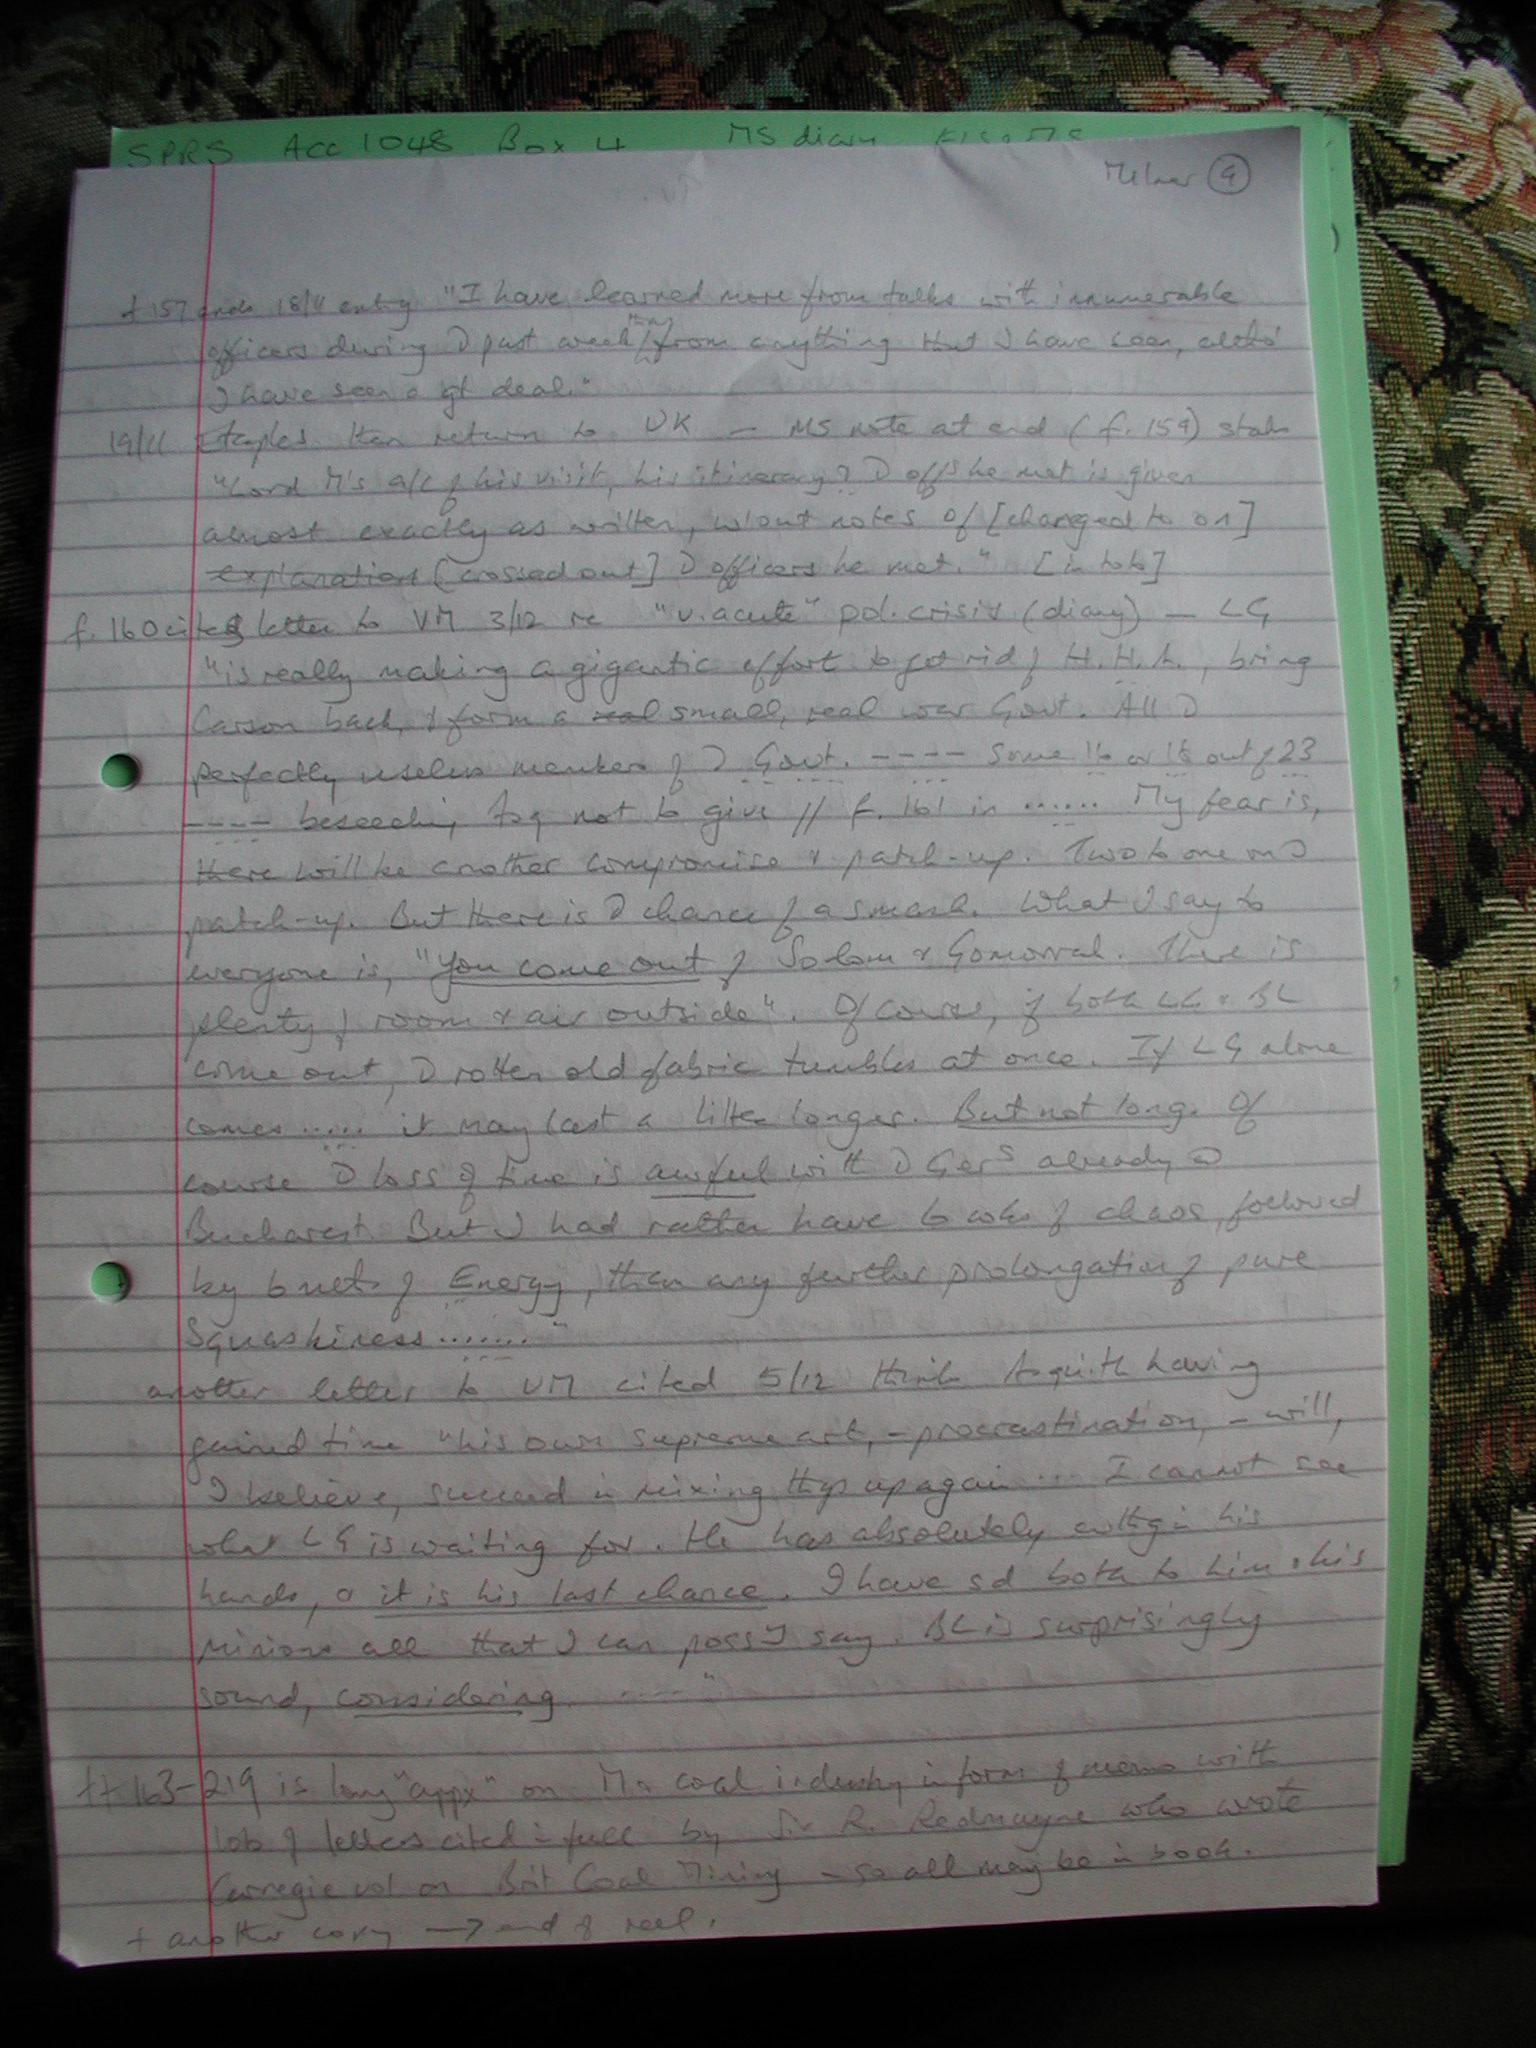 SPRS Acc 1048 Box 4 MS diary
Milner 9
f 157 ends 18/11 entry "I have learned more from talks with innumerable
officers during D past week than from anything that I have seen, altho'
I have seen a gt deal."
19/11 Etaples then return to UK – MS note at end (f. 159) stats
"Lord M's a/c of his visit, his itinerary & D offs he met is given
almost exactly as written, w'out notes of [changed to on]
explanations [crossed out] D officers he met." [in toto]
f. 160 cites letter to VM 3/12 re "v. acute" pol. crisis (diary) – LG
"is really making a gigantic effort to get rid of H.H.A., bring
Carson back, & form a real small, real war Govt. All D
perfectly useless members of D Govt. ---- some 16 or 18 out of 23
---- beseeching Asq not to give // f. 161 in ...... My fear is,
there will be another compromise & patch-up. Two to one on D
patch-up. But there is D chance of a smash. What I say to
everyone is, "You come out of Sodom & Gomorrah. There is
plenty of room & air outside". Of course, if both LG & BL
come out, D rotten old fabric tumbles at once. If LG alone
comes ..... it may last a little longer. But not long. Of
course D loss of time is awful with D Gers already @
Bucharest. But I had rather have 6 wks of chaos, followed
by 6 mths of Energy, than any further prolongation of pure
Squashiness ......."
another letter to VM cited 5/12 thinks Asquith having
gained time "his own supreme art, – procrastination, – will,
I believe, succeed in mixing thgs up again ... I cannot see
what LG is waiting for. He has absolutely evthg in his
hands, & it is his last chance. I have sd both to him & his
minions all that I can possy say. BL is surprisingly
sound, considering. ----"
ff 163-219 is long "appx" on M & coal industry in form of memo with
lots of letters cited in full by Sir R. Redmayne who wrote
Carnegie vol on Brit Coal Mining – so all may be in book.
+ another copy → end of reel.